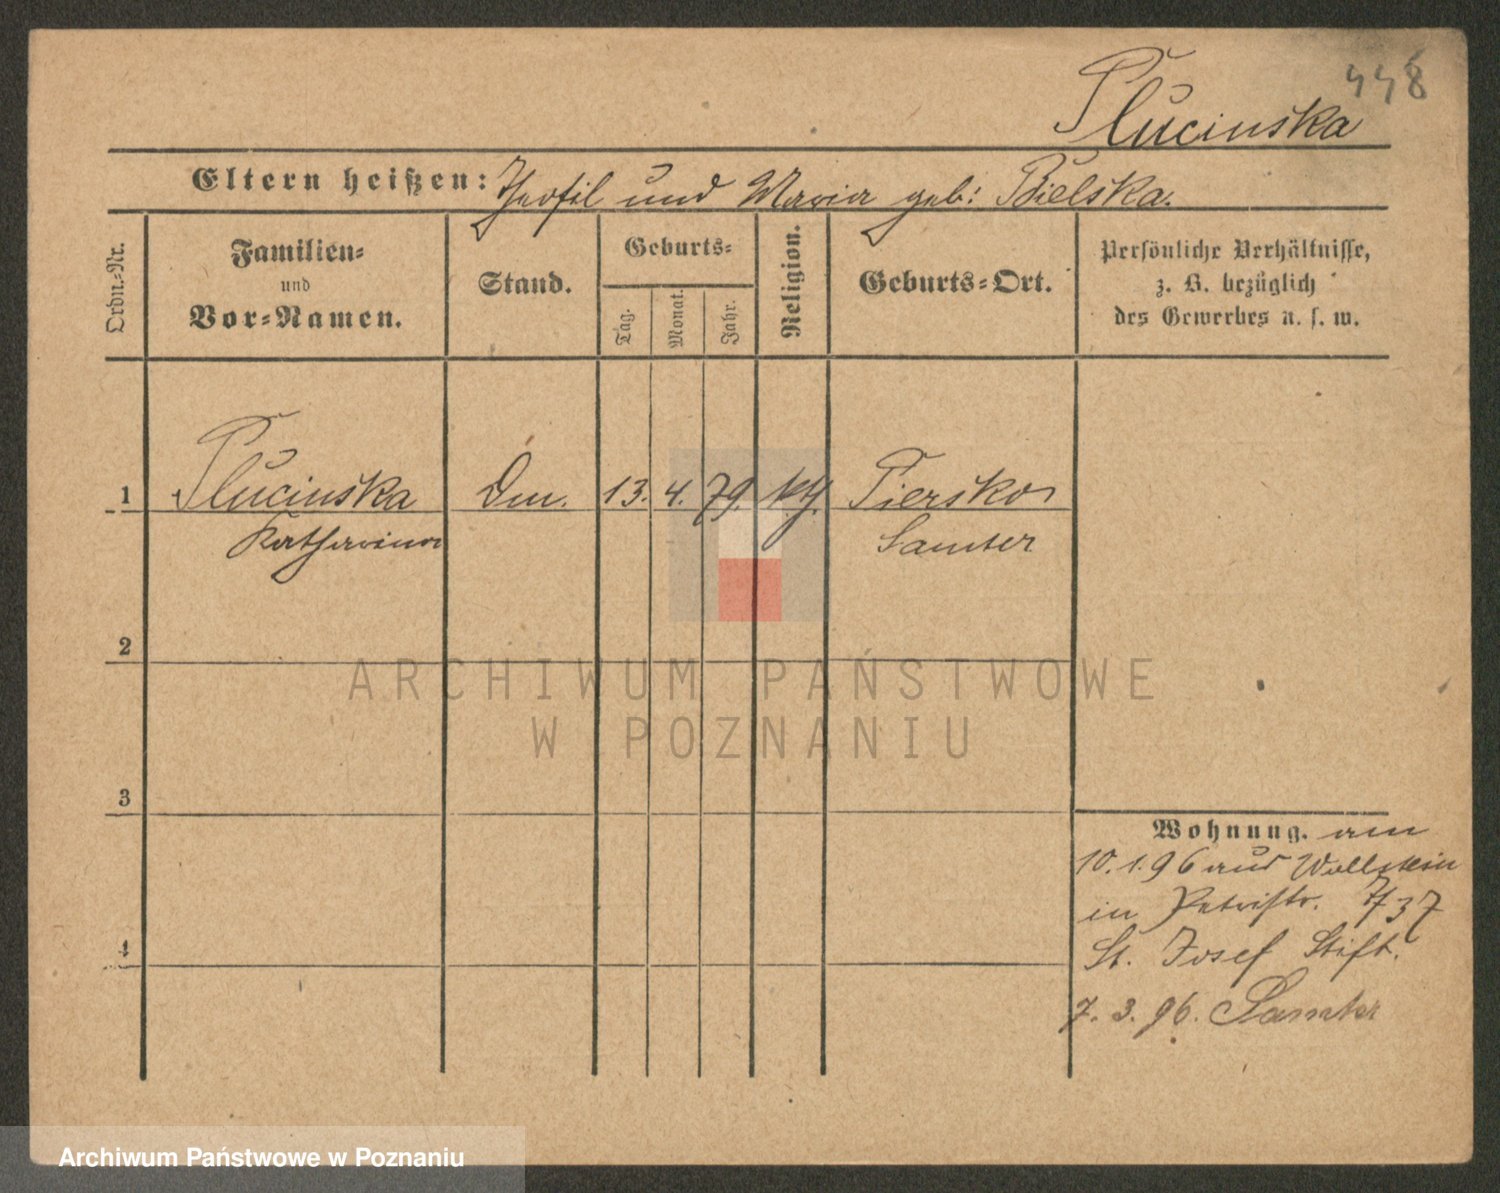 448
Plucinska
Eltern heißen: Theofil und Maria geb: Bielska.
Ordn.-Nr.
Familien-
und
Vor-Namen.
Stand.
Geburts-
Tag.
Monat.
Jahr.
Religion.
Geburts-Ort.
Persönliche Verhältnisse,
z. B. bezüglich
des Gewerbes u. s. w.
1 Plucinska Dm. 13. 4. 79. kth. Piersko
Katharina Samter
2
3
4
Wohnung. am
10.1.96 aus Wollstein
in Petristr. 7
St. Josef Stift.
7. 3. 96. Samter
ARCHIWUM PAŃSTWOWE
W POZNANIU
Archiwum Państwowe w Poznaniu